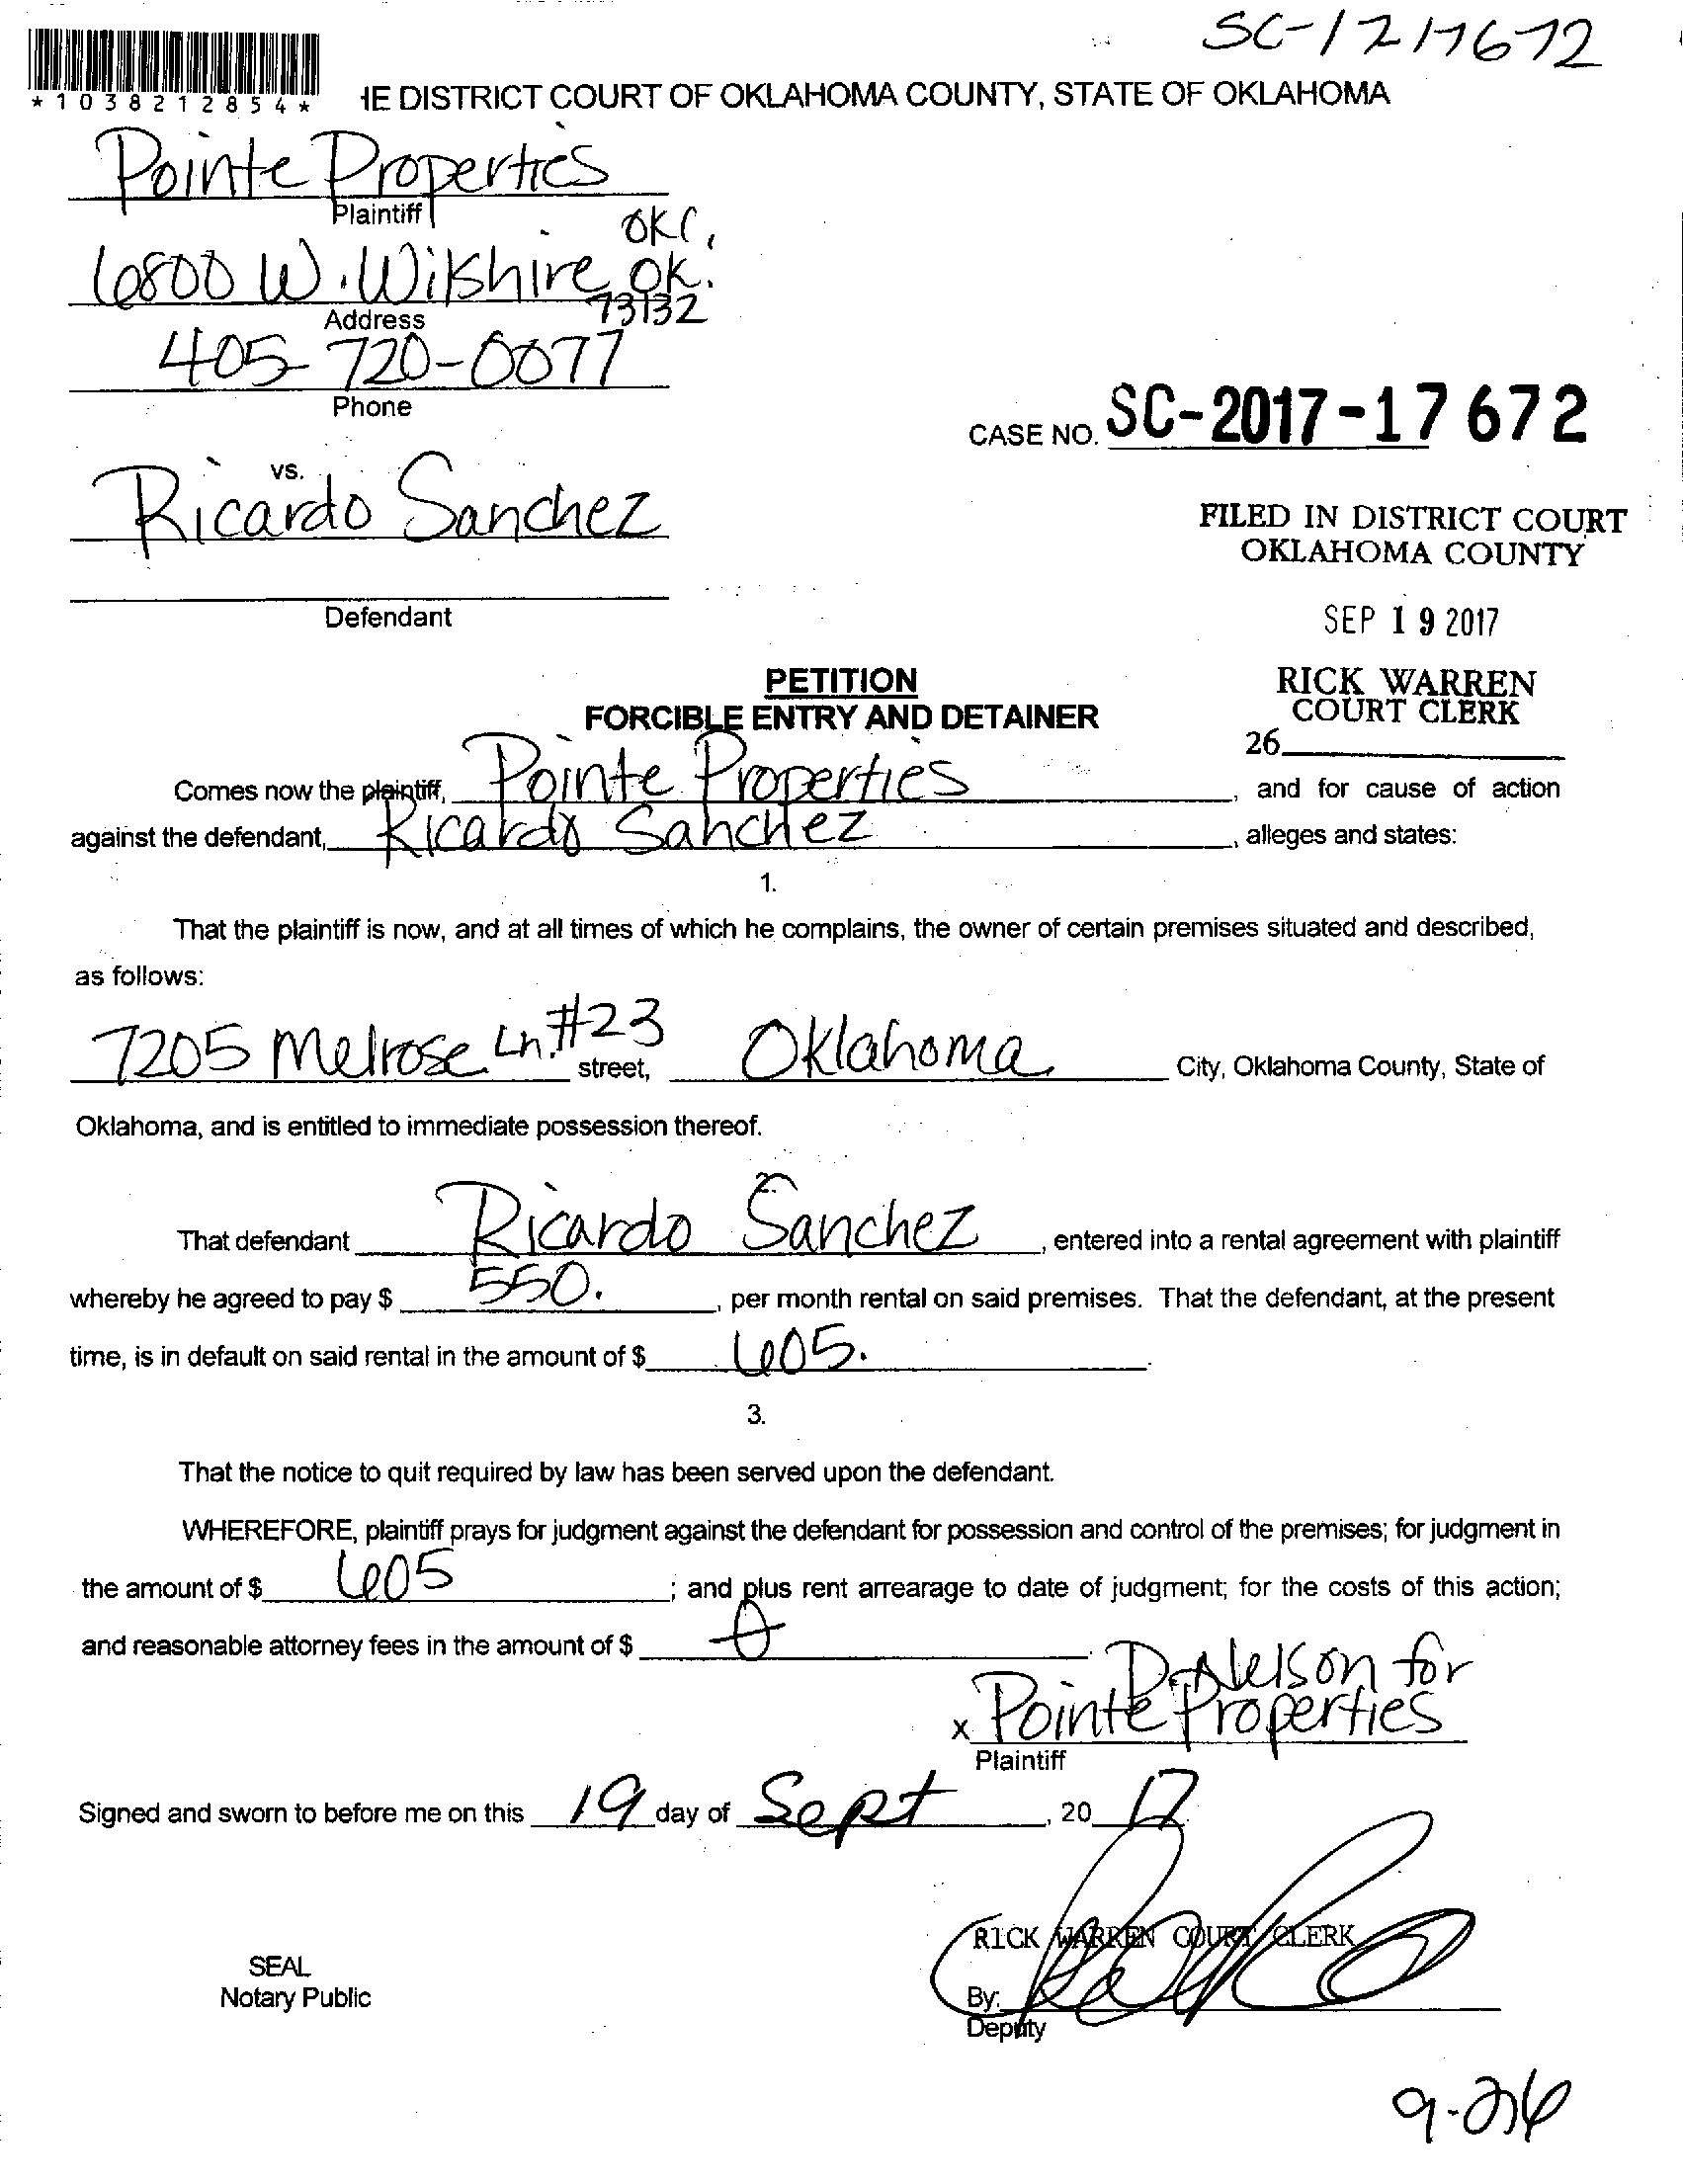 SC-1717672
*1038212854*
HE DISTRICT COURT OF OKLAHOMA COUNTY, STATE OF OKLAHOMA
Pointe Properties
Plaintiff
OKC,
6800 W. Wilshire, OK.
73132
Address
405-720-0077
Phone
CASE NO. SC-2017-17672
vs.
Ricardo Sanchez
FILED IN DISTRICT COURT
OKLAHOMA COUNTY
Defendant
SEP 19 2017
PETITION
FORCIBLE ENTRY AND DETAINER
RICK WARREN
COURT CLERK
26
Comes now the plaintiff, Pointe Properties, and for cause of action
against the defendant, Ricardo Sanchez, alleges and states:
1.
That the plaintiff is now, and at all times of which he complains, the owner of certain premises situated and described,
as follows:
7205 Melrose Ln. #23 street, Oklahoma City, Oklahoma County, State of
Oklahoma, and is entitled to immediate possession thereof.
2.
That defendant Ricardo Sanchez, entered into a rental agreement with plaintiff
whereby he agreed to pay $ 550., per month rental on said premises. That the defendant, at the present
time, is in default on said rental in the amount of $ 605.
3.
That the notice to quit required by law has been served upon the defendant.
WHEREFORE, plaintiff prays for judgment against the defendant for possession and control of the premises; for judgment in
the amount of $ 605; and plus rent arrearage to date of judgment; for the costs of this action;
and reasonable attorney fees in the amount of $ 0.
D. Nelson for
x Pointe Properties
Plaintiff
Signed and sworn to before me on this 19 day of Sept, 20 17
RICK WARREN COURT CLERK
SEAL
Notary Public
By:
Deputy
9-26